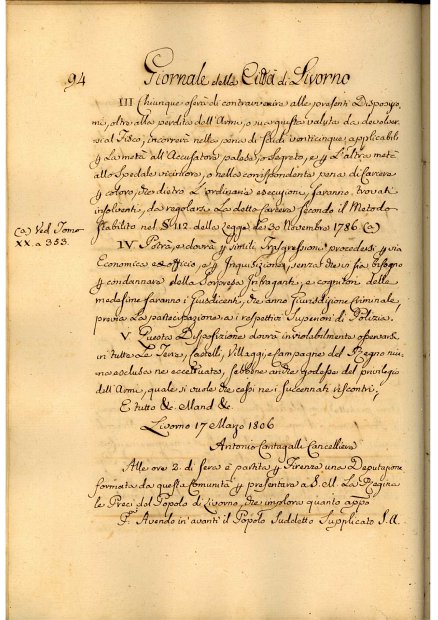 94 Giornale della Città di Livorno
III Chiunque oserà di contravvenire alle presenti Disposizio,
ni, oltre alla perdita dell'Armi, o sua giusta valuta da devolver,
si al Fisco, incorrerà nella pena di Scudi venticinque, applicabili
p la metà all'Accusatore palese, o segreto, e p l'altra metà
allo Spedale vicin'ore, o nella corrispondente pena di Carcere
p coloro, che dietro l'ordinaria esecuzione, saranno trovati
insolventi, da regolarsi la detta Carcere secondo il Metodo
stabilito nel §. 112 della Legge de' 30 Novembre 1786 (a)
(a) Ved. Tomo
XX. a 353.
IV Potrà, e dovrà p simili Trasgressioni procedersi p via
Economica ex officio, e p Inquisizione, senza che vi sia bisogno
p condannare della Sorpresa Infraganti, e cognitori delle
medesime saranno i Giusdicenti, che anno Giurisdizione Criminale,
previa la partecipazione a i respettivi Superiori di Polizia.
V Questa Disposizione dovrà inviolabilmente osservarsi
in tutte le Terre, Castelli, Villaggi, e Campagne del Regno niu,
na esclusa ne eccettuata, sebbene anche godesse del privilegio
dell'Armi, quale si vuole che cessi ne i succennati riscontri,
E tutto &c. Mand. &c.
Livorno 17 Marzo 1806
Antonio Cantagalli Cancelliere
Alle ore 2. di sera è partita p Firenze una Deputazione
formata da questa Comunità p presentare a S. M. La Regina
le Preci del Popolo di Livorno, che implora quanto app.o
P.o Avendo in avanti il Popolo suddetto supplicato S. M.